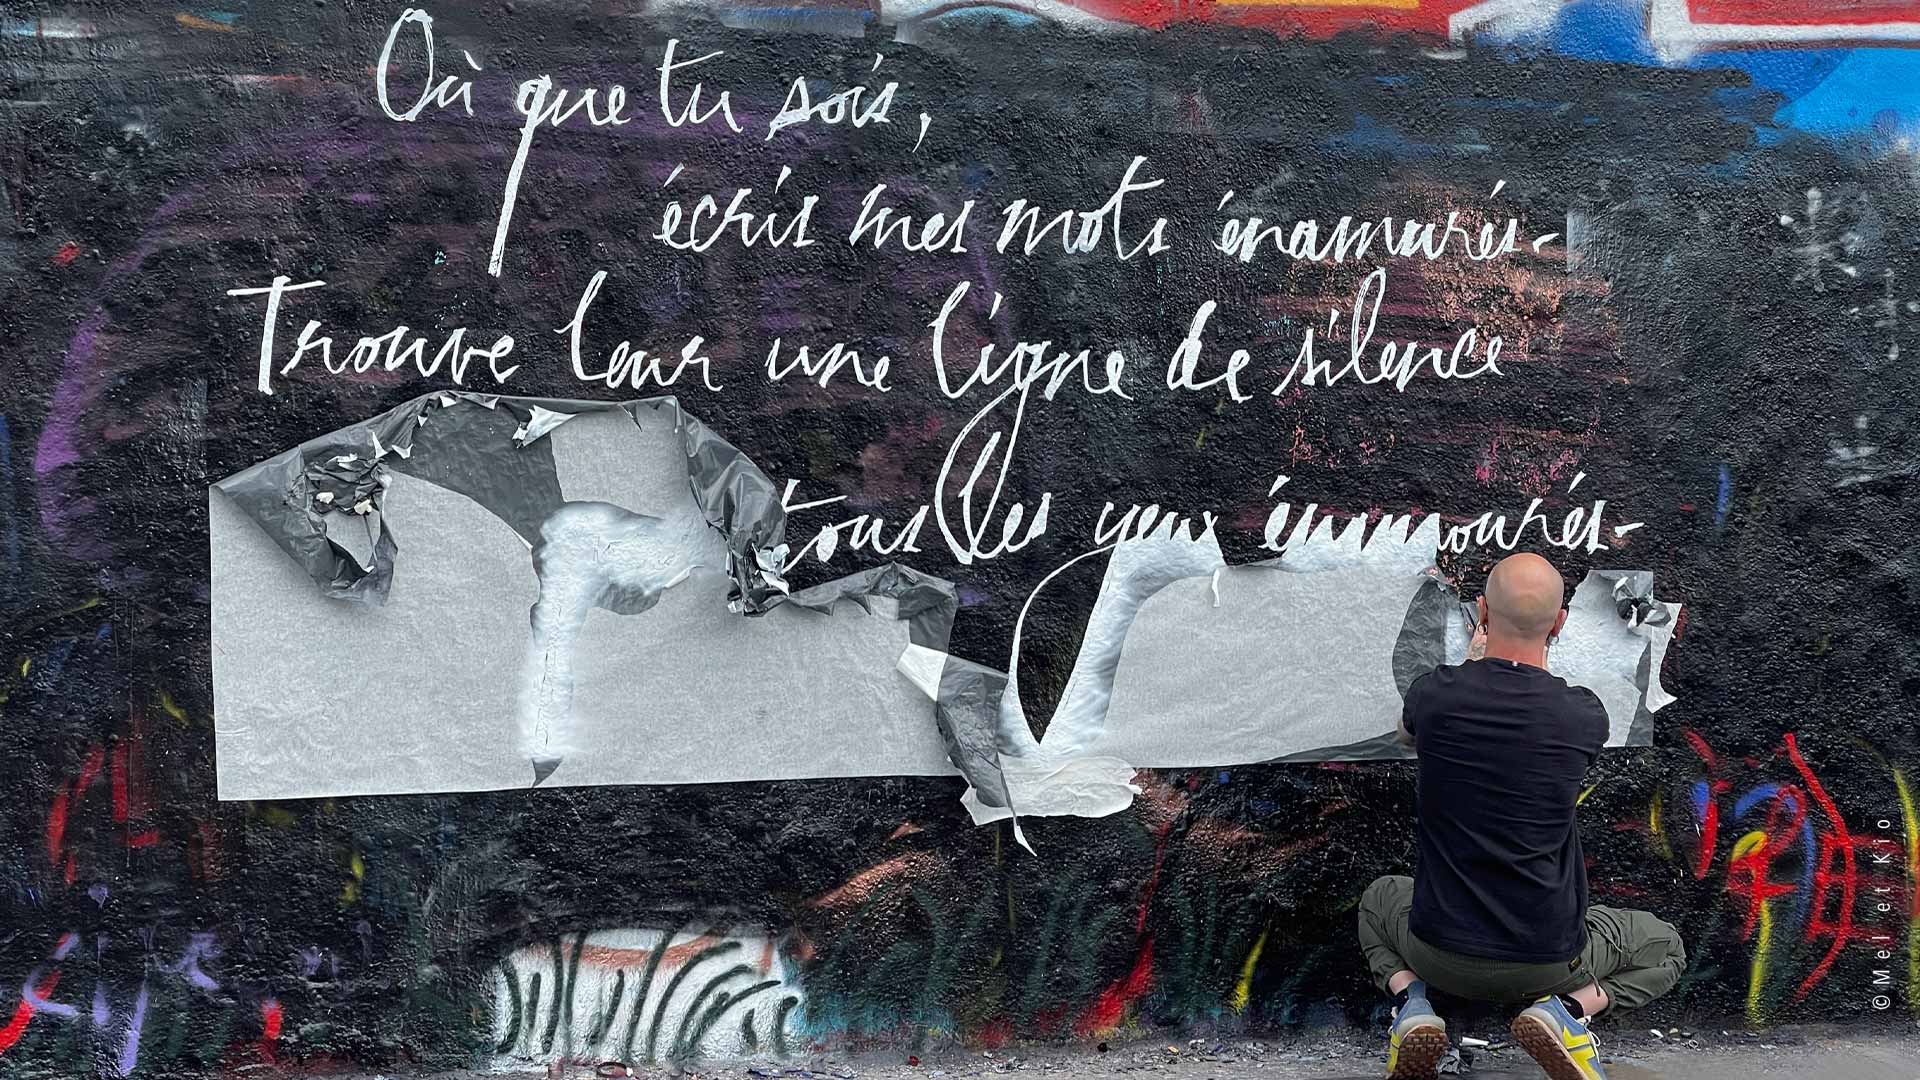 Où que tu sois,
écris mes mots énamurés-
Trouve leur une ligne de silence
tous les yeux énamourés-
© Mel et Kio